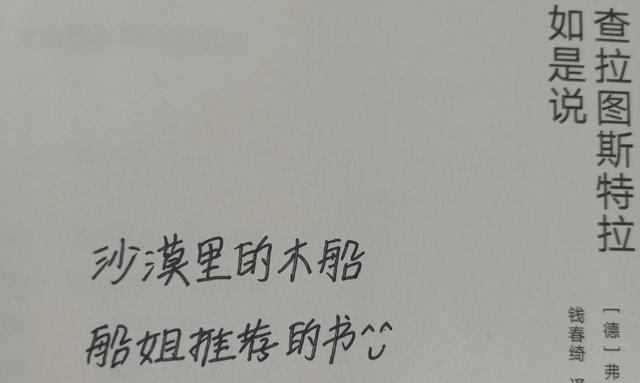 查拉图斯特拉
如是说
[德]弗
钱春绮 译
沙漠里的木船
船姐推荐的书^^